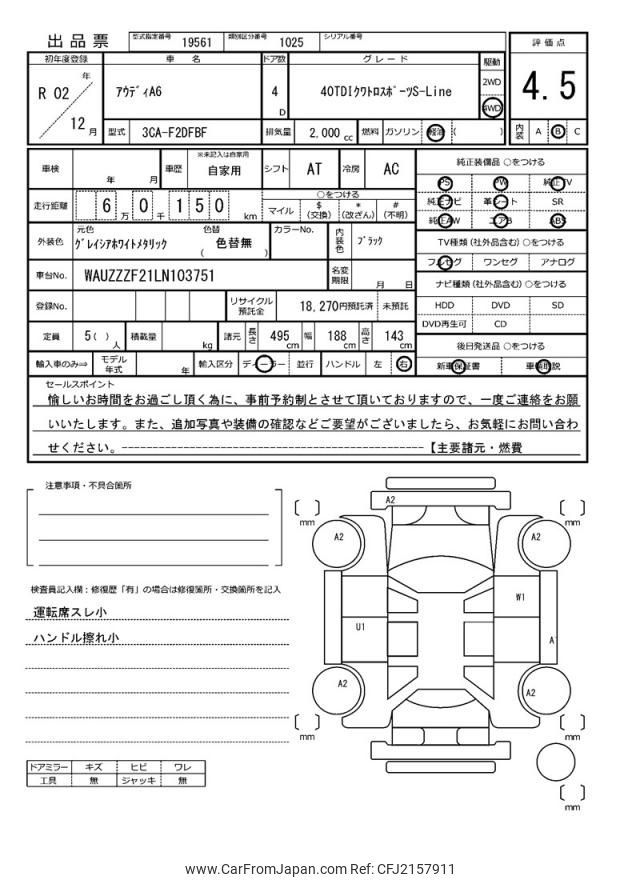 出品票 型式指定番号 19561 類別区分番号 1025 シリアル番号
評価点
4.5
内装 A B C
初年度登録 車名 ドア数 グレード 駆動
R 02 年 12 月
アウディA6 4 D 40TDIクワトロスポーツS-Line 2WD 4WD
型式 3CA-F2DFBF 排気量 2,000 cc 燃料 ガソリン 軽油 ( )
車検 年 月 車歴 ※未記入は自家用 自家用 シフト AT 冷房 AC
走行距離 6 万 0 千 1 5 0 km
○をつける
マイル $(交換) *(改ざん) #(不明)
外装色 元色 グレイシアホワイトメタリック 色替 色替無 ( ) カラーNo. 内装色 ブラック
車台No. WAUZZZF21LN103751 名変期限 月 日
登録No. リサイクル預託金 18,270円預託済 未預託
定員 5( ) 人 積載量 kg 諸元 長さ 495 cm 幅 188 cm 高さ 143 cm
輸入車のみ⇒ モデル年式 年 輸入区分 ディーラー 並行 ハンドル 左 右
純正装備品 ○をつける
PS PW 純正TV
純正ナビ 革シート SR
純正AW エアB ABS
TV種類(社外品含む) ○をつける
フルセグ ワンセグ アナログ
ナビ種類(社外品含む) ○をつける
HDD DVD SD
DVD再生可 CD
後日発送品 ○をつける
新車保証書 車輌取説
セールスポイント
愉しいお時間をお過ごし頂く為に、事前予約制とさせて頂いておりますので、一度ご連絡をお願
いいたします。また、追加写真や装備の確認などご要望がございましたら、お気軽にお問い合わ
せください。------------------------------------------------【主要諸元・燃費
注意事項・不具合箇所
検査員記入欄:修復歴「有」の場合は修復箇所・交換箇所を記入
運転席スレ小
ハンドル擦れ小
ドアミラー キズ ヒビ ワレ
工具 無 ジャッキ 無
A2
[ ] mm [ ] mm
A2 A2
W1
U1 A
A2 A2
[ ] mm [ ] mm
[ ] mm
www.CarFromJapan.com Ref: CFJ2157911